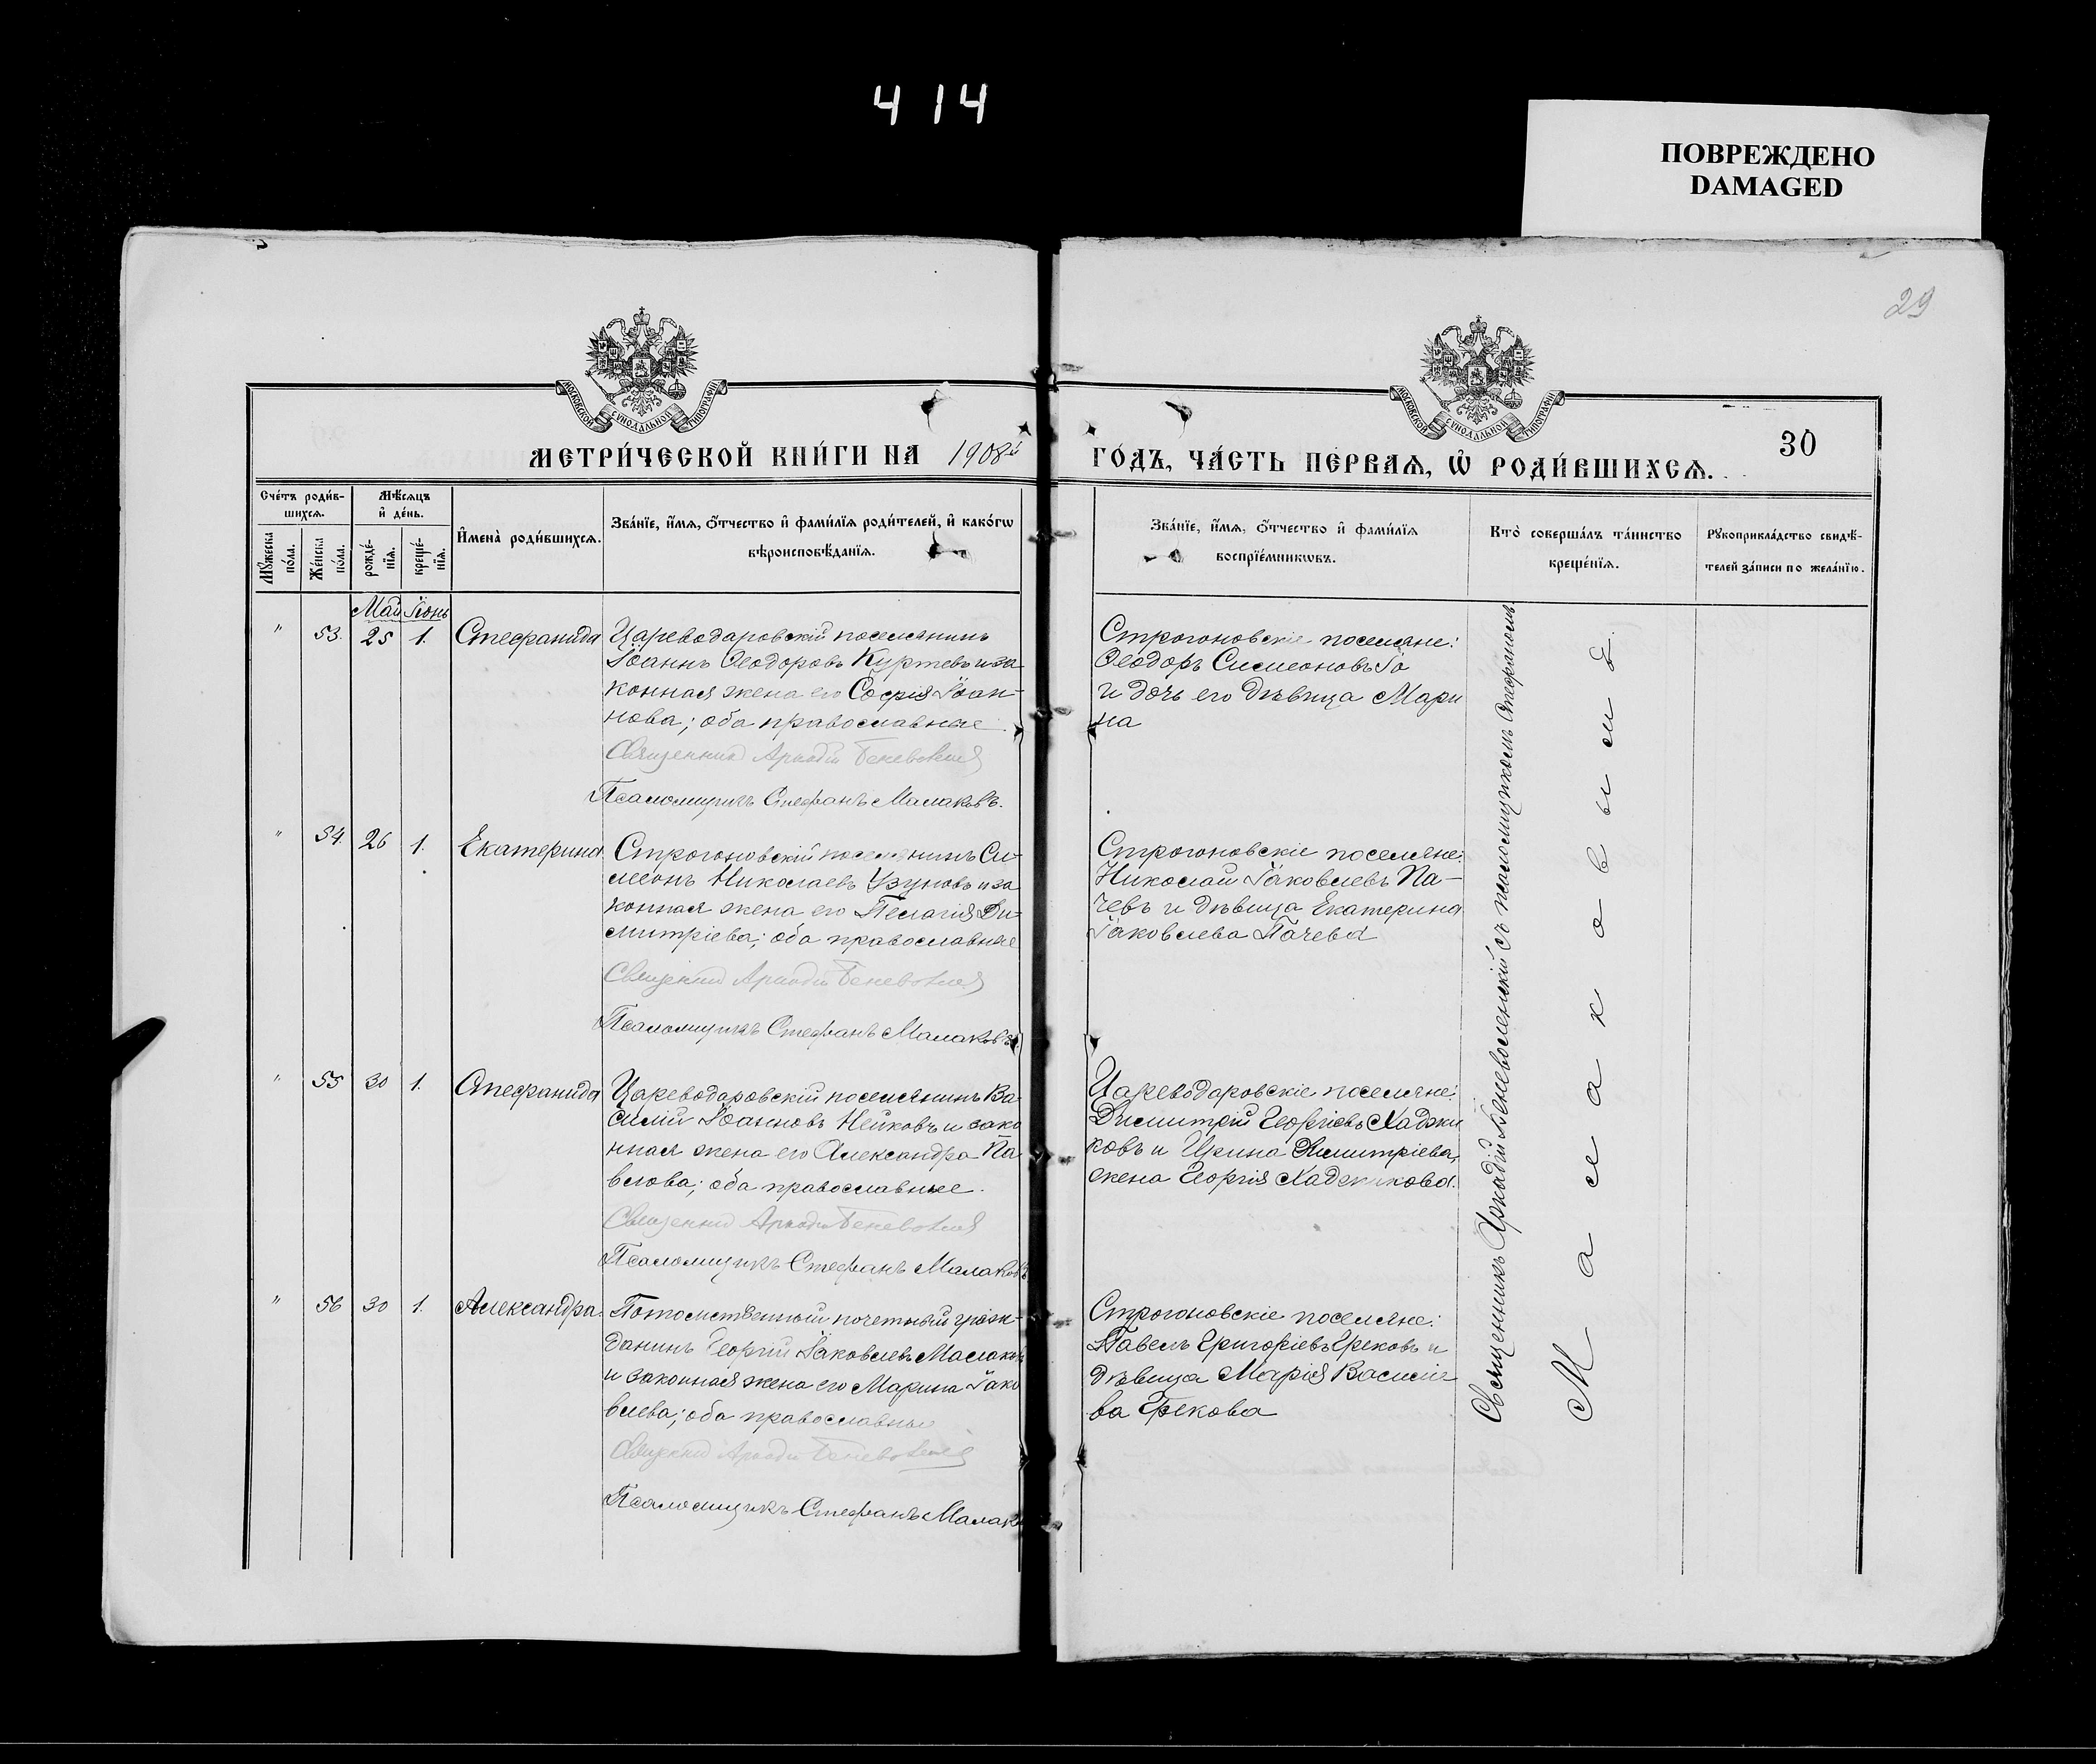 414
ПОВРЕЖДЕНО
DAMAGED
29
МОСКОВСКОЙ СѴНОДАЛЬНОЙ ТИПОГРАФІИ
МОСКОВСКОЙ СѴНОДАЛЬНОЙ ТИПОГРАФІИ
МЕТРИ́ЧЕСКОЙ КНИ́ГИ НА 1908й
ГО́ДЪ, ЧА́СТЬ ПЕ́РВАѦ, Ѽ РОДИ́ВШИХСѦ.
30
Сче́тъ роди́в-
шихсѧ.
Мꙋ́жеска по́ла.
Же́нска по́ла.
Мѣ́сѧцъ
и҆ де́нь.
рожде́-
нїѧ.
креще́-
нїѧ.
И҆мена̀ роди́вшихсѧ.
Зва́нїе, и҆́мѧ, ѻ҆́тчество и҆ фами́лїѧ роди́телей, и҆ како́гѡ
вѣроисповѣ́данїѧ.
Зва́нїе, и҆́мѧ, ѻ҆́тчество и҆ фами́лїѧ
воспрїе́мникѡвъ.
Кто̀ соверша́лъ та́инство
креще́нїѧ.
Рꙋкоприкла́дство свидѣ́-
телей за́писи по жела́нїю.
Май Іюнь
" 53. 25 1. Стефанида
Цареводаровскій поселянинъ
Іоаннъ Ѳеодоровъ Куртевъ и за
конная жена его Софія Іоан-
нова; оба православные.
Священникъ Аркадій Беневоленскій
Псаломщикъ Стефанъ Малаковъ.
Строгоновскіе поселяне:
Ѳеодоръ Симеоновъ Го
и дочь его дѣвица Мари
на
" 54. 26 1. Екатерина.
Строгоновскій поселянинъ Си-
меонъ Николаевъ Узуновъ и за
конная жена его Пелагія Ди-
митріева; оба православные
Священникъ Аркадій Беневоленскій
Псаломщикъ Стефанъ Малаковъ.
Строгоновскіе поселяне:
Николай Іаковлевъ Па-
чевъ и дѣвица Екатерина
Іаковлева Пачева
" 55 30 1. Стефанида
Цареводаровскій поселянинъ Ва-
силій Іоанновъ Нейковъ и зако
нная жена его Александра Па
влова; оба православные.
Священникъ Аркадій Беневоленскій
Псаломщикъ Стефанъ Малаковъ
Цареводаровскіе поселяне:
Димитрій Георгіевъ Хаджи
ковъ и Ирина Димитріева,
жена Георгія Хаджикова.
" 56 30 1. Александра.
Потомственный почетный граж-
данинъ Георгій Іаковлевъ Малаковъ
и законная жена его Марина Іако
влева; оба православны
Священникъ Аркадій Беневоленскій
Псаломщикъ Стефанъ Малак
Строгоновскіе поселяне:
Павелъ Григоріевъ Грековъ и
дѣвица Марія Василіе
ва Грекова
Священникъ Аркадій Беневоленскій съ псаломщикомъ Стефаномъ
Малаковымъ.